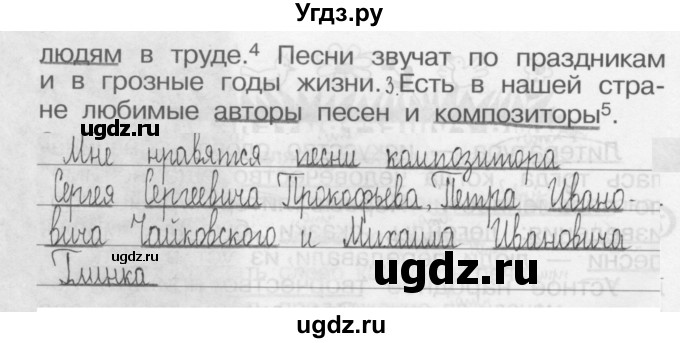 Угдз.ру
людям в труде.⁴ Песни звучат по праздникам
и в грозные годы жизни.3.Есть в нашей стра-
не любимые авторы песен и композиторы⁵.
ugdz.ru
Мне нравятся песни композитора
Сергея Сергеевича Прокофьева, Петра Ивано
вича Чайковского и Михаила Ивановича
Глинка
ugdz.ru
ugdz.ru
ugdz.ru